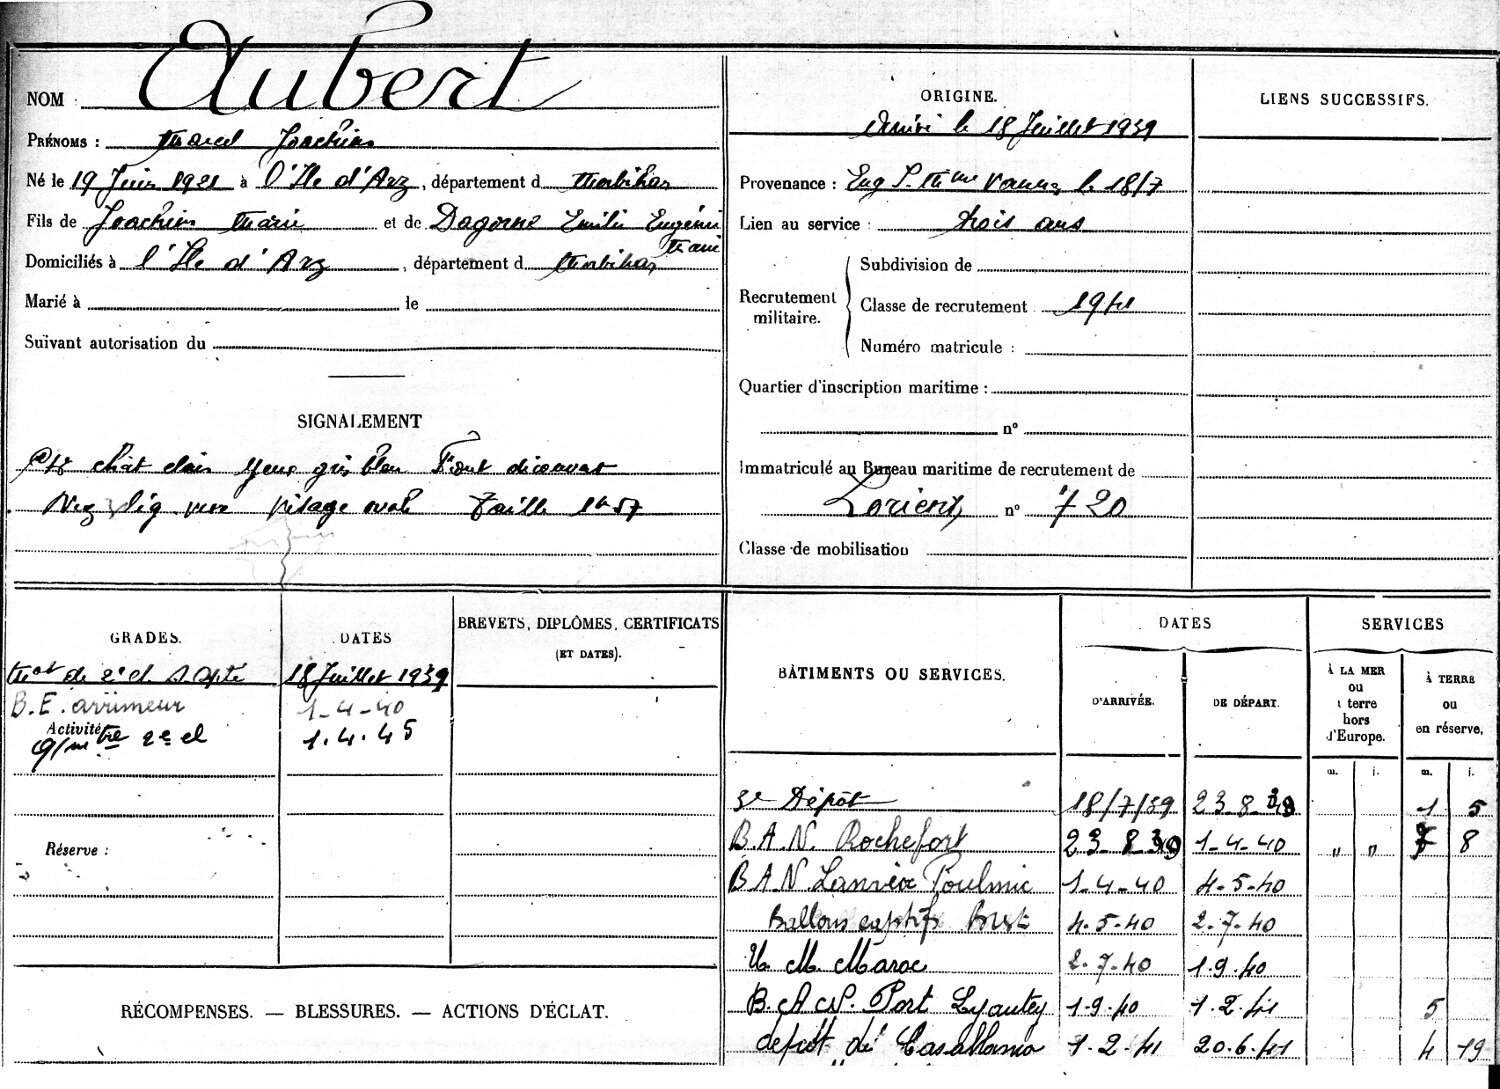 NOM Aubert
PRÉNOMS : Marcel Joachim
Né le 19 Juin 1921 à l'Ile d'Arz, département d Morbihan
Fils de Joachim Marie et de Dagorne Emilie Eugénie
Marie
Domiciliés à l'Ile d'Arz, département d Morbihan
Marié à le
Suivant autorisation du
SIGNALEMENT
chât clair yeux gris bleu Front découvert
Nez lég Visage ovale Taille 1m 57
ORIGINE.
Arrivé le 18 Juillet 1939
Provenance : Eng Vannes le 18/7
Lien au service : trois ans
Recrutement militaire.
Subdivision de
Classe de recrutement 1941
Numéro matricule :
Quartier d'inscription maritime :
n°
Immatriculé au Bureau maritime de recrutement de
Lorient, n° 720
Classe de mobilisation
LIENS SUCCESSIFS.
GRADES. DATES BREVETS, DIPLÔMES, CERTIFICATS
(ET DATES).
Mot de 2e cl. 18 Juillet 1939
B.E. arrimeur 1-4-40
Activité
q/mtre 2e cl 1.4.45
Réserve :
RÉCOMPENSES. — BLESSURES. — ACTIONS D'ÉCLAT.
BÂTIMENTS OU SERVICES. DATES SERVICES
D'ARRIVÉE. DE DÉPART.
À LA MER
ou
à terre
hors
d'Europe.
À TERRE
ou
en réserve,
m. j. m. j.
3e Dépôt 18/7/39 23-8- 1 5
B.A.N. Rochefort 23-8-39 1-4-40 " " 7 8
B.A.N. Lanvéoc Poulmic 1-4-40 4-5-40
Ballons captifs Brest 4.5.40 2.7.40
U. M. Maroc 2.7.40 1.9.40
B.A.N. Port Lyautey 1.9.40 1.2.41 5
dépôt de Casablanca 1.2.41 20.6.41 4 19